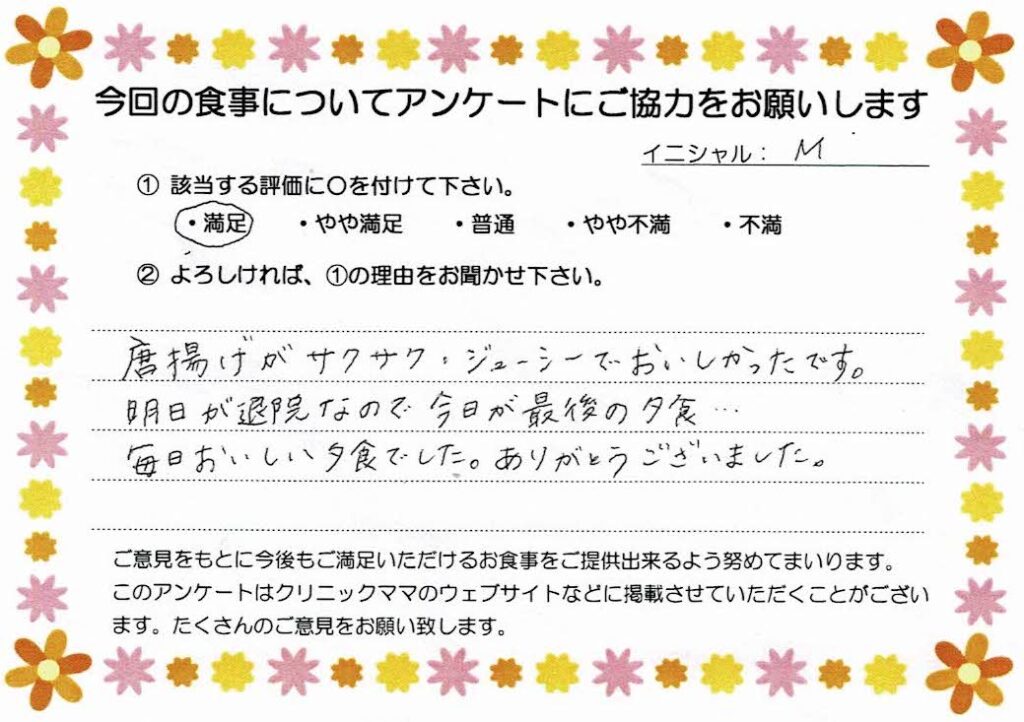 今回の食事についてアンケートにご協力をお願いします
イニシャル： M
① 該当する評価に〇を付けて下さい。
・満足 ・やや満足 ・普通 ・やや不満 ・不満
② よろしければ、①の理由をお聞かせ下さい。
唐揚げがサクサク・ジューシーでおいしかったです。
明日が退院なので今日が最後の夕食…
毎日おいしい夕食でした。ありがとうございました。
ご意見をもとに今後もご満足いただけるお食事をご提供出来るよう努めてまいります。
このアンケートはクリニックママのウェブサイトなどに掲載させていただくことがござい
ます。たくさんのご意見をお願い致します。